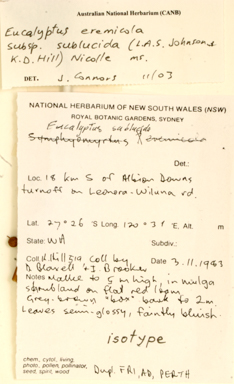 Australian National Herbarium (CANB)
Eucalyptus eremicola
subsp. sublucida (L.A.S. Johnson &
K.D. Hill) Nicolle ms.
DET. J. Connors 11/03
NATIONAL HERBARIUM OF NEW SOUTH WALES (NSW)
ROYAL BOTANIC GARDENS, SYDNEY
Eucalyptus sublucida
Symphyomyrtus
Det.:
Loc. 18 km S of Albion Downs
turnoff on Leonora-Wiluna rd.
Lat. 27°26 'S Long 120°31' E. Alt. m
State: WA Subdiv.:
Coll. K. Hill 519 coll by Date 3.11.1983
D. Blaxell & I. Brooker
Notes Mallee to 5 m high in mulga
shrubland on flat red loam.
Grey-brown "box" bark to 2m.
Leaves semi-glossy, faintly bluish.
isotype
chem, cytol, living,
photo, pollen, pollinator,
seed, spirit, wood
Dupl. FRI, AD, PERTH